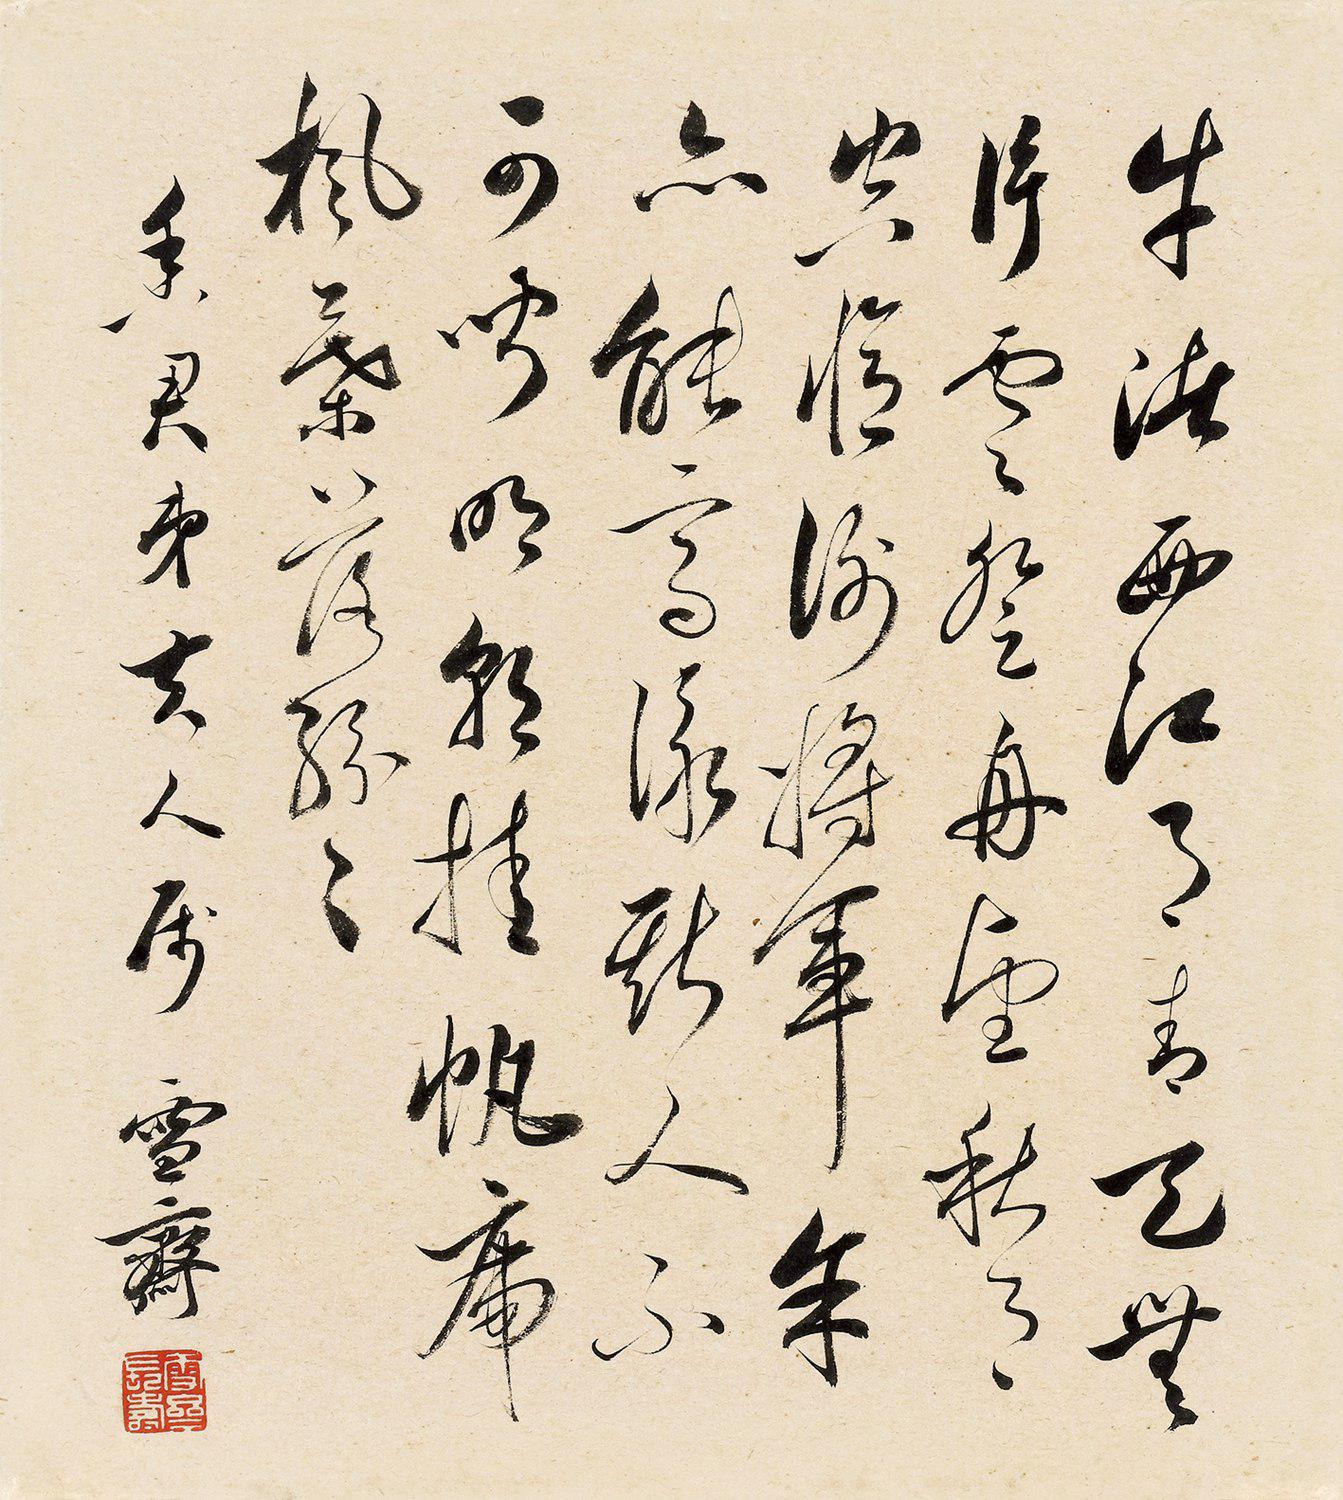 牛渚西江月青天無
片雲登舟望秋月
空憶謝將軍余
亦能高詠斯人不
可聞明朝挂帆席
楓葉落紛〻
香君弟夫人属 雪齋